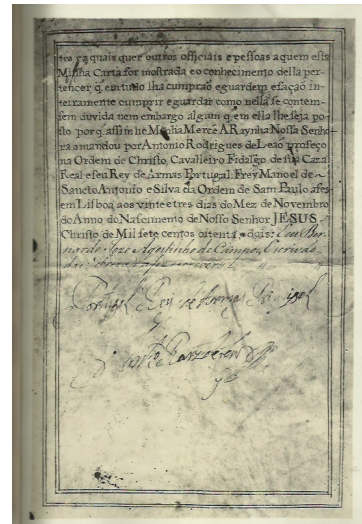 tes e a quais quer outros officiais e pessoas a quem esta
Minha Carta for mostrada e o conhecimento della per-
tencer q̃ em tudo lha cumprão e guardem e fação in-
teiramente cumprir e guardar como nella se contem-
sem duvida nem embargo algum q̃ em ella lhe seja po-
sto porq̃ assim he Minha Mercê A Raynha Nossa Senho-
ra o mandou por Antonio Rodrigues de Leão profeço
na Ordem de Christo, Cavalleiro Fidalgo de sua Caza
Real e seu Rey de Armas Portugal: Frey Manoel de
Sancto Antonio e Silva da Ordem de Sam Paulo a fes
em Lisboa aos vinte e tres dias do Mez de Novembro
do Anno do Nascimento de Nosso Senhor JESUS
Christo de Mil sete centos oitenta e dois: E eu Ber-
nardo Joze Agostinho de Campos Escrivão
Portugal Rey de Armas Principal